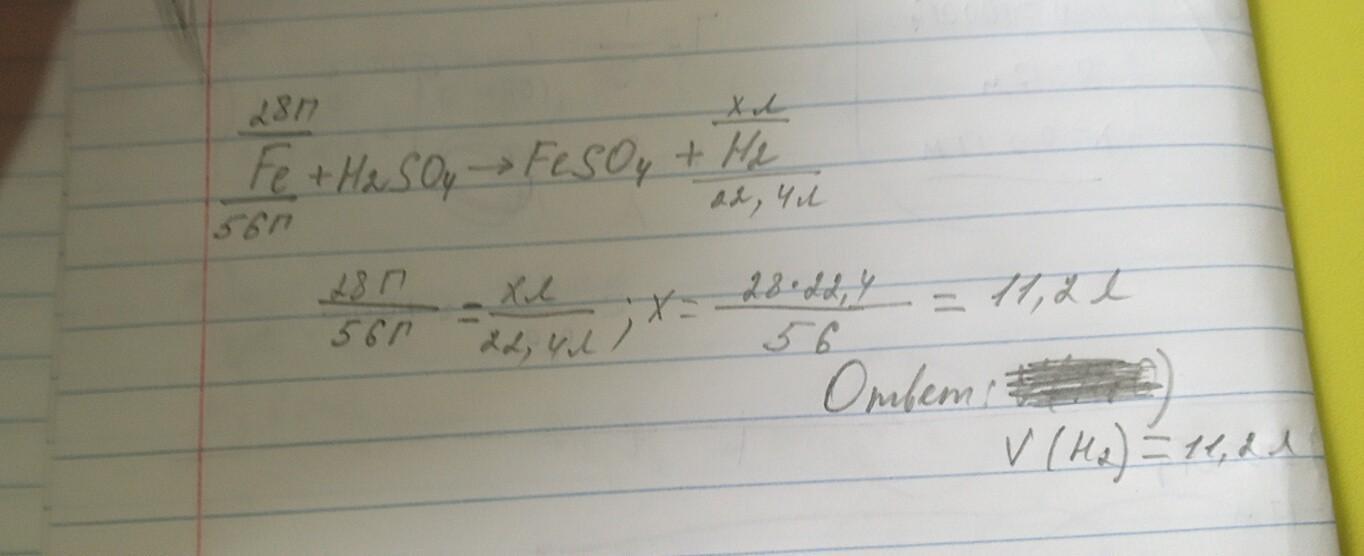 28г хл
Fe + H2SO4 → FeSO4 + H2
56г 22,4л
28г/56г = хл/22,4л; х = 28·22,4/56 = 11,2л
Ответ:
V(H2) = 11,2л